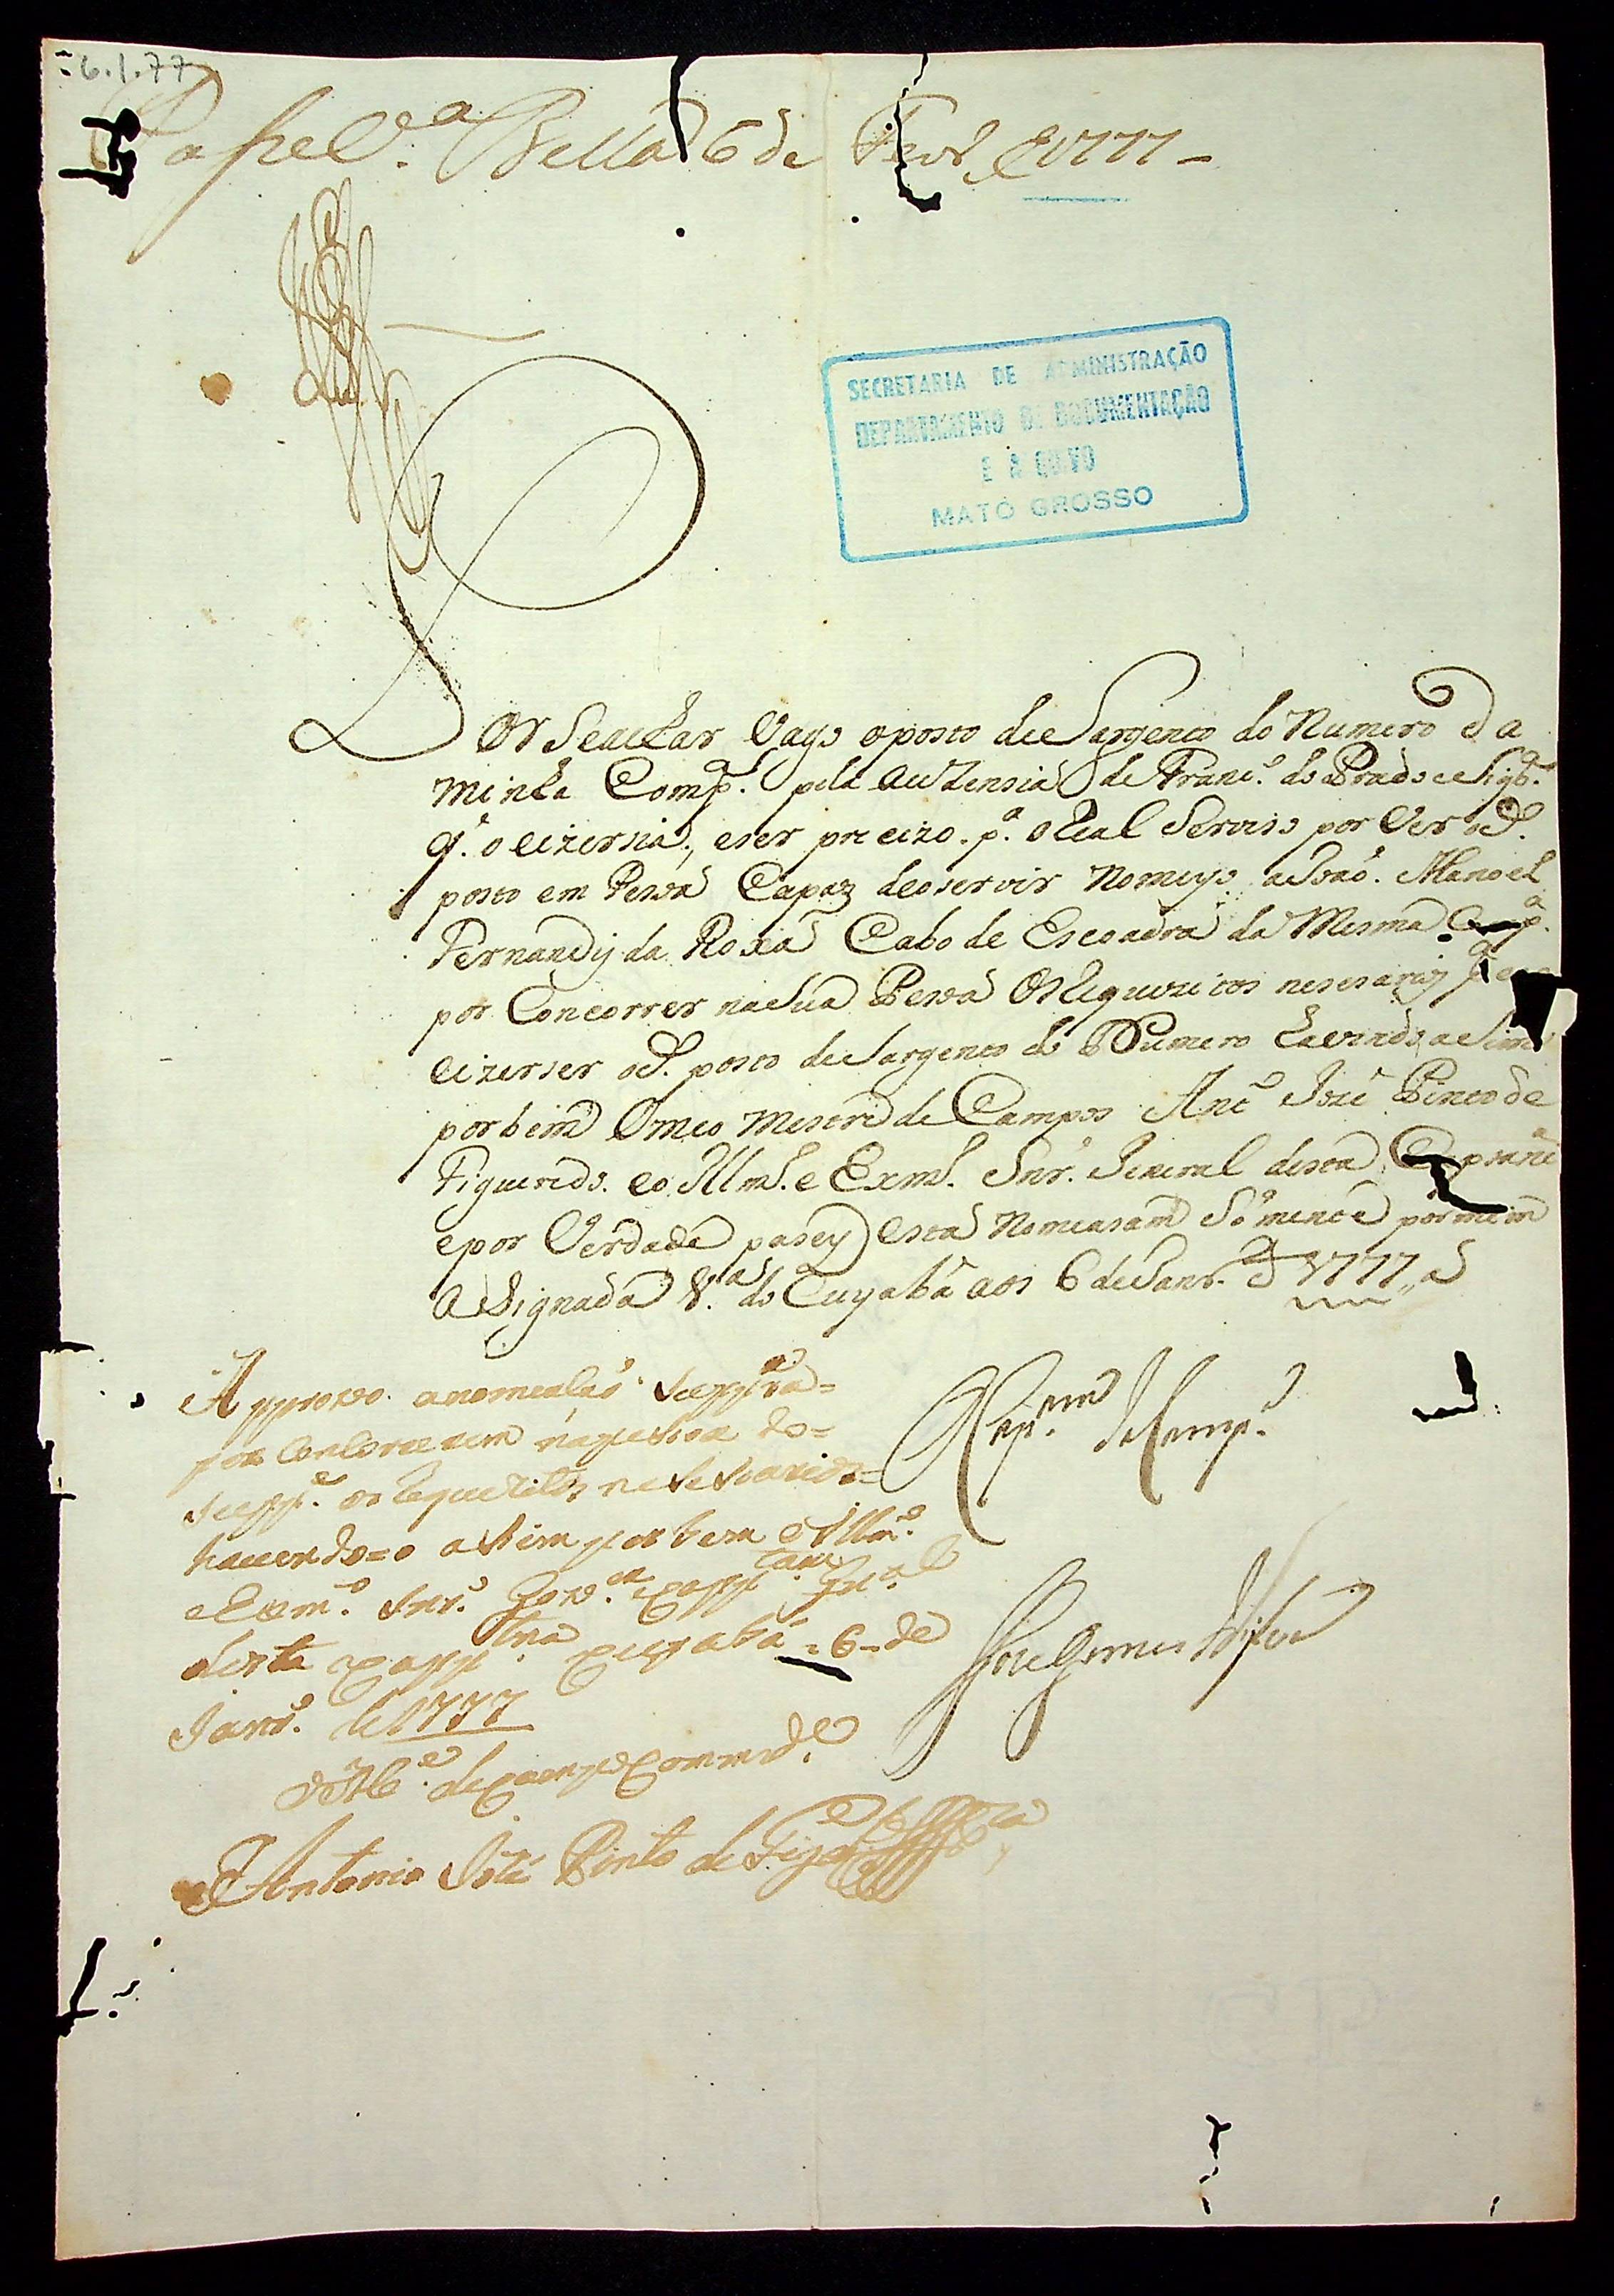 6.1.77
Bella 6 de Fevr.º de 1777
SECRETARIA DE ADMINISTRAÇÃO
DEPARTAMENTO DE DOCUMENTAÇÃO
E ARQUIVO
MATO GROSSO
Por Seachar Vago oposto de Sargento do Numero da
minha Comp.ª pela Auzensia de Franc.º do Prado
q. o eizersia, eser precizo p.ª o Real Serviso por Ver od.
posto em Pesoa Capaz deoservir Nomeyo aJoaõ Manoel
Fernandiz da Roxa Cabo de Escoadra da Mesma Comp.ª
por Concorrer naSua Pesoa Os Requezitos nesesarios p.ª
eizerser od. posto de Sargento do Numero havendo aSim
porbem O meo Mestre de Campos Ant.º Jozé Pinto de
Figueredo eo Illm.º e Exm.º Snr. General desta
epor Verdade pasey esta Nomeasam Sómente pormim
aSignada V.ª do Cuyabá aos 6 de Janr.º de 1777
Approvo anomeaçaõ
por Concorrerem napesoa do
Supp.e os Requezitos neseSarios
havendo=o aSim por bem o Illm.º
e Exm.º Snr. Gov.or e Capp.tam Gn.al
desta Capp.nia Cuyabá 6 de
Janr.º de 1777
O M.e de Campo Comm.de
Antonio Jozé Pinto de Fig.do
Jose Gomes da Silva